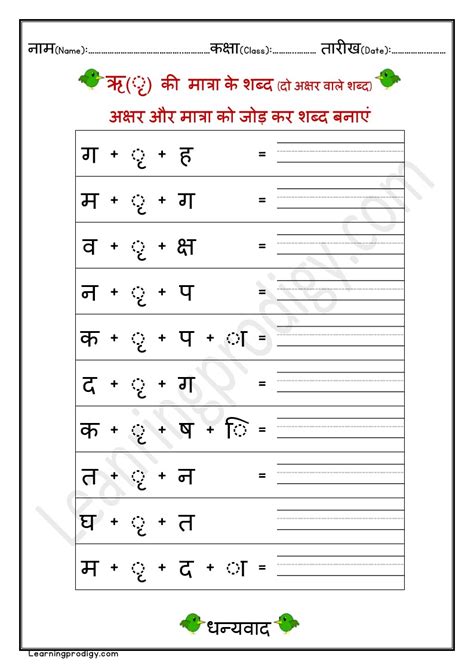 नाम(Name):........................कक्षा(Class):.............. तारीख(Date):................
ऋ(ृ) की मात्रा के शब्द (दो अक्षर वाले शब्द)
अक्षर और मात्रा को जोड़ कर शब्द बनाएं
ग + ृ + ह =
म + ृ + ग =
व + ृ + क्ष =
न + ृ + प =
क + ृ + प + ा =
द + ृ + ग =
क + ृ + ष + ि =
त + ृ + न =
घ + ृ + त =
म + ृ + द + ा =
धन्यवाद
Learningprodigy.com
Learningprodigy.com